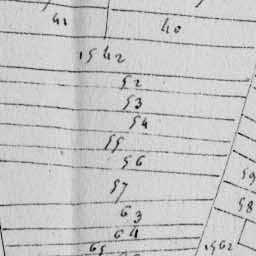 41 40
1542
52
53
54
55
56
57
59
58
63
64
65
1562